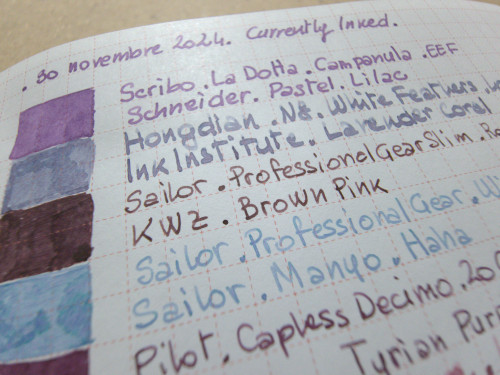 . 30 novembre 2024. Currently Inked.
Scribo. La Dotta. Campanula. EEF
Schneider. Pastel. Lilac
Hongdian. N8. White Feathers.
Ink Institute. Lavender Coral
Sailor. Professional Gear Slim.
KWZ. Brown Pink
Sailor. Professional Gear.
Sailor. Manyo. Haha
Pilot. Capless Decimo.
Tyrian